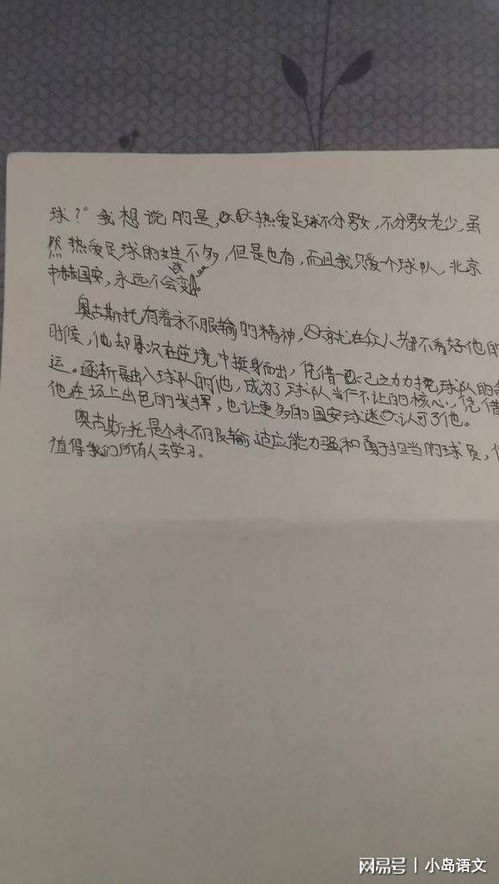 球？”我想说的是，热爱足球不分男女，不分男女老少，虽
然热爱足球的女生不多，但是也有，而且我只爱一个球队，北京
中赫国安，永远不会变。
奥古斯托有着永不服输的精神，就在众人都不看好他的
时候，他却屡次在逆境中挺身而出，凭借一己之力力挽球队的
运。逐渐融入球队的他，成为了球队当仁不让的核心，凭借
他在场上出色的发挥，也让更多的国安球迷认可了他。
奥古斯托是个永不服输适应能力强和勇于担当的球员，
值得我们所有人去学习。
网易号 | 小岛语文